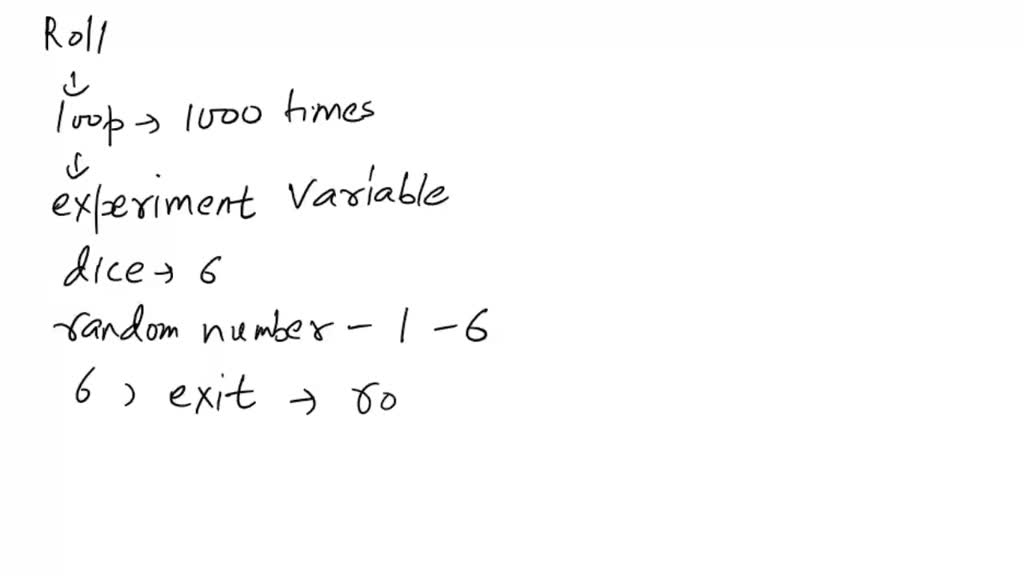 Roll
loop → 1000 times
experiment Variable
dice → 6
random number - 1 - 6
6, exit → ro